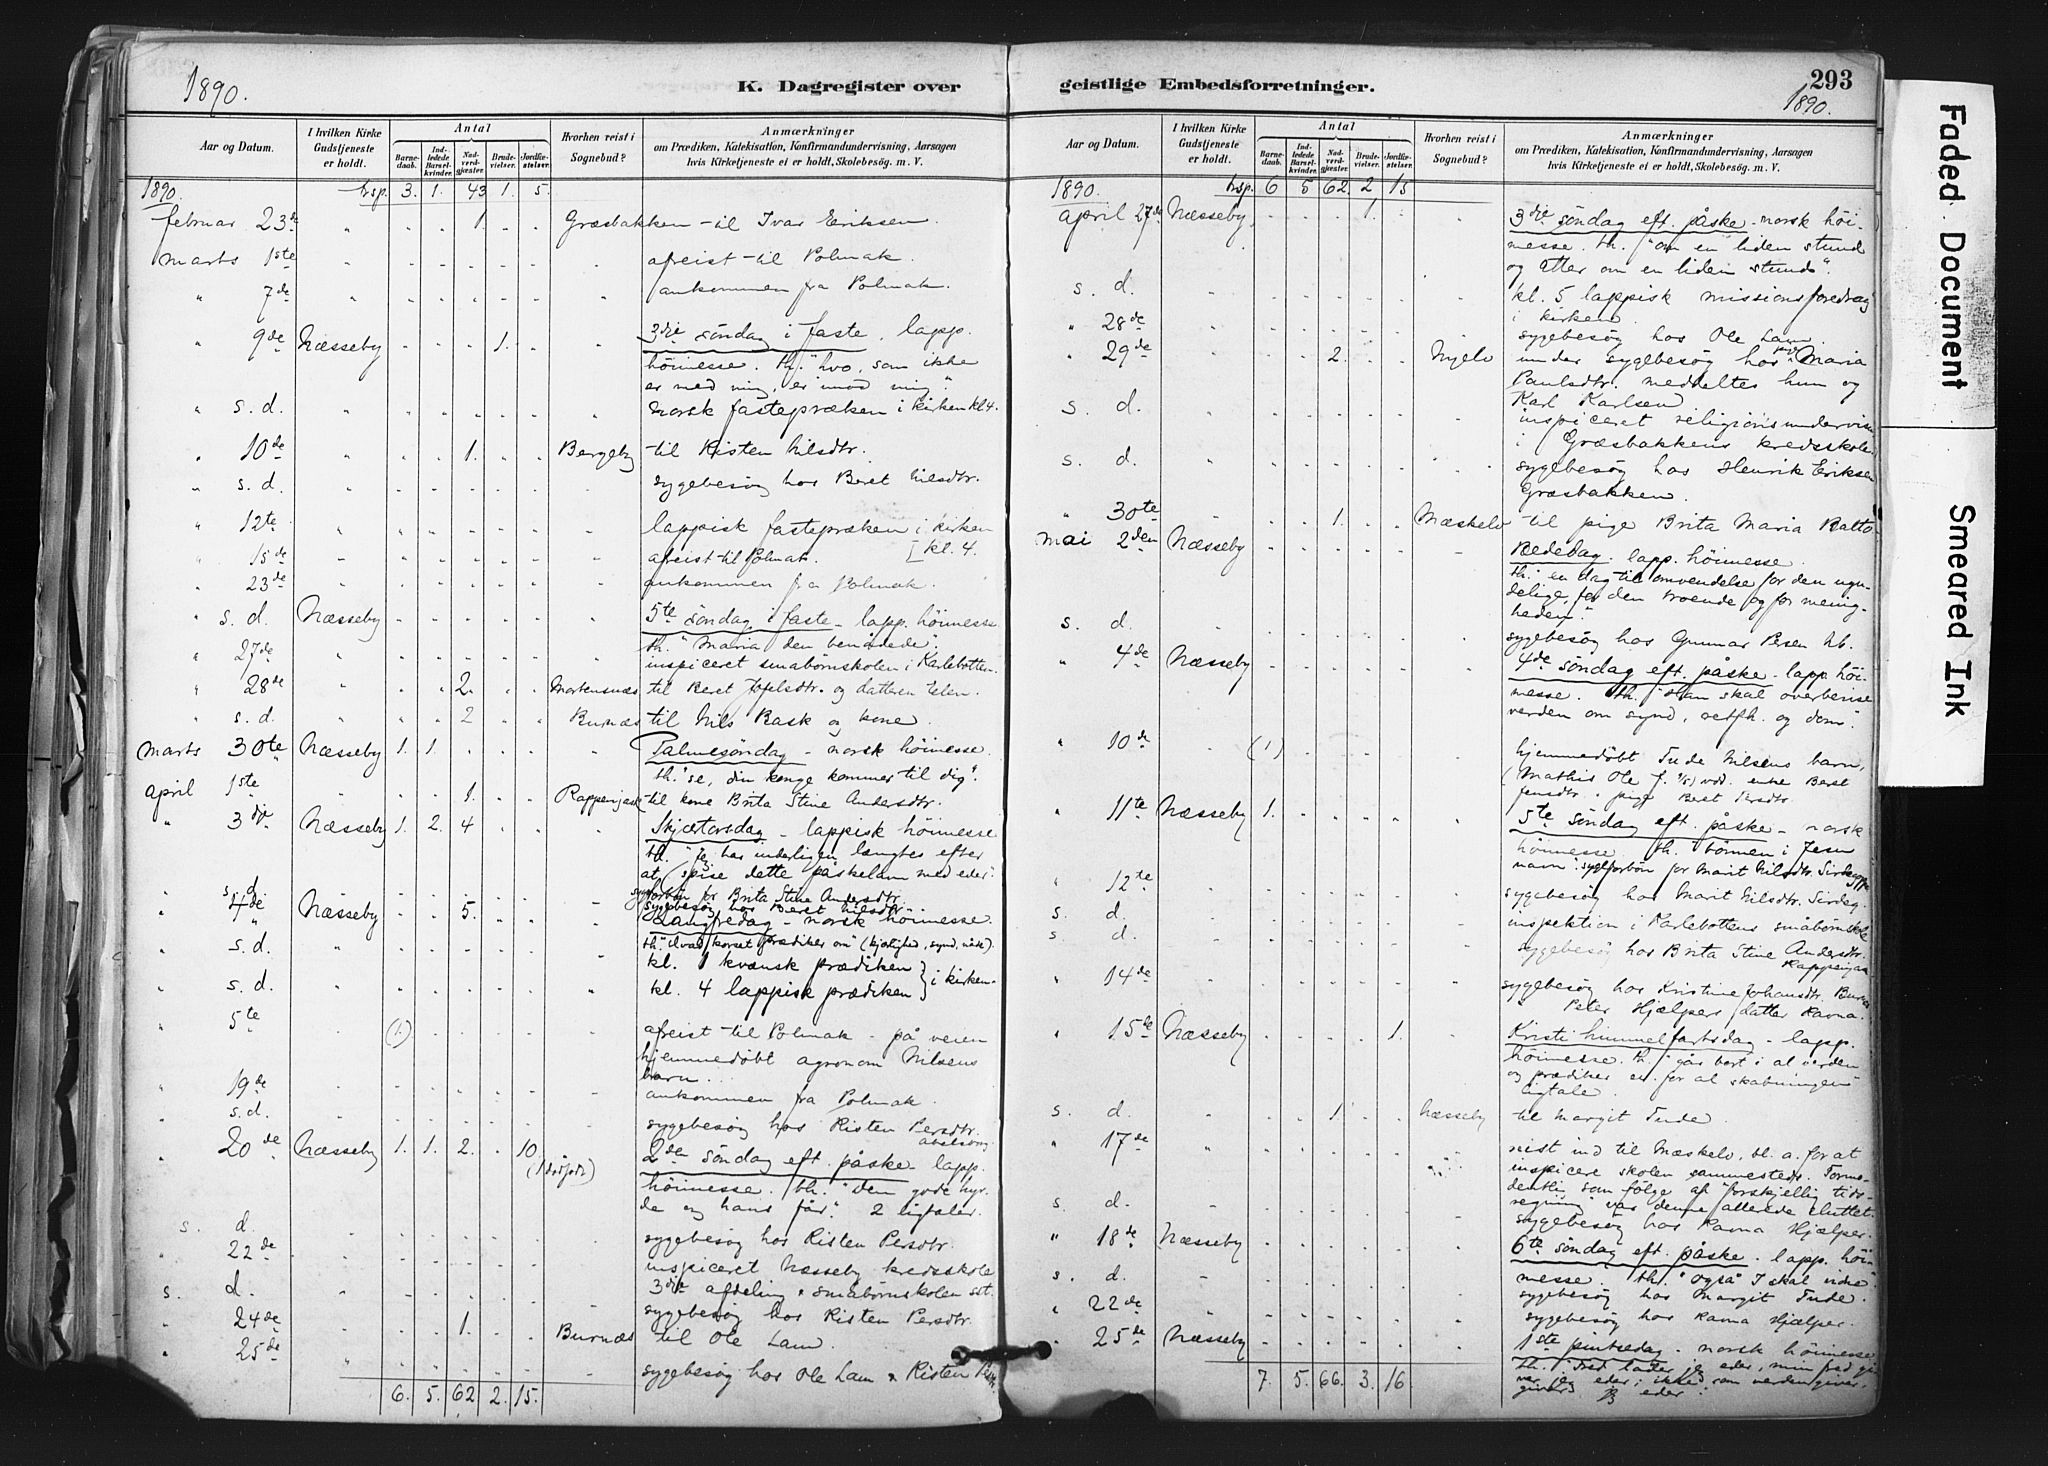 1890.
K. Dagregister over
Aar og Datum.
I hvilken Kirke Gudstjeneste er holdt.
Antal
Barnedaab.
Indledede Barselkvinder.
Nadverdgjæster.
Brudevielser.
Jordfæstelser.
Hvorhen reist i Sognebud?
Anmærkninger
om Prædiken, Katekisation, Konfirmandundervisning, Aarsagen
hvis Kirketjeneste ei er holdt, Skolebesøg. m. V.
1890. trsp. 3. 1. 43 1. 5.
februar 23de " 1. Græsbakken - til Ivar Eriksen.
marts 1ste " afreist til Polmak.
" 7de " ankommen fra Polmak.
" 9de Næsseby 1. 3die søndag i faste. lapp.
høimesse. th. "hvo, som ikke
er med mig, er imod mig."
" s. d. " norsk fastepræken i kirken kl 4.
" 10de " 1. Bergeby til Risten Nilsdtr.
" s. d. " sygebesøg hos Beret Nilsdtr.
" 12te " lappisk fastepræken i kirken
[kl. 4.
" 15de " afreist til Polmak.
" 23de " ankommen fra Polmak.
" s. d. Næsseby 5te søndag i faste - lapp. høimesse
th. "Maria den benådede".
" 27de " inspiceret småbørnskolen i Karlebotten.
" 28de " 2. Mortensnæs til Beret Josefsdtr. og datteren Elen.
" s. d. " 2 Burnæs til Nils Bask og kone.
marts 30te Næsseby 1. 1. Palmesøndag - norsk høimesse.
th. "se, din konge kommer til dig".
april 1ste " 1. til kone Brita Stine Andersdtr.
" 3die Næsseby 1. 2. 4 Skjærtorsdag - lappisk høimesse
th. "Jeg har inderligen længtes efter
at spise dette påskelam med eder"
forbøn for Brita Stine Andersdtr.
s. d. sygebesøg hos Beret Nilsdtr.
" 4de Næsseby 5. Langfredag - norsk høimesse.
th. "Hvad korset prædiker om" (kjærlighed, synd, nåde).
" s. d. " kl. 1 kvænsk prædiken
" s. d. " kl. 4 lappisk prædiken } i kirken.
" 5te " (1) afreist til Polmak - på veien
hjemmedøbt agronom Nilsens
barn...
" 19de " ankommen fra Polmak.
" s. d. " sygebesøg hos Risten Persdtr.
" 20de Næsseby 1. 1. 2. 10 (1 dødfødt) 2den søndag eft. påske - lapp.
høimesse. th. "den gode hyr-
de og hans får". 2 ligtaler.
s. d. sygebesøg hos Risten Persdtr.
" 22de " inspiceret Næsseby kredsskole
s. d. 3die afdeling & småbørnskolen sst.
sygebesøg hos Risten Persdtr.
" 24de " 1. Burnæs til Ole Lam.
" 25de " sygebesøg hos Ole Lam & Risten
6. 5. 62 2. 15.
geistlige Embedsforretninger.
293
1890.
Aar og Datum.
I hvilken Kirke Gudstjeneste er holdt.
Antal
Barnedaab.
Indledede Barselkvinder.
Nadverdgjæster.
Brudevielser.
Jordfæstelser.
Hvorhen reist i Sognebud?
Anmærkninger
om Prædiken, Katekisation, Konfirmandundervisning, Aarsagen
hvis Kirketjeneste ei er holdt, Skolebesøg. m. V.
1890. trsp. 6 5 62. 2 15
april 27de Næsseby 1. 3die søndag eft. påske - norsk høi-
messe. th. "om en liden stund
og atter om en liden stund".
s. d. kl. 5 lappisk missionsforedrag
i kirken.
" 28de sygebesøg hos Ole Lam.
" 29de 2. Nyelv under sygebesøg hos pige Maria
Paulsdtr. meddeltes hun og
Karl Karlsen
s. d. inspiceret religionsundervisn
i Græsbakkens kredsskole.
s. d. sygebesøg hos Henrik Eriksen
Græsbakken.
" 30te 1. Mæskelv til pige Brita Maria Batto
mai 2den Næsseby Bededag. lapp. høimesse.
th. "en dag til omvendelse for den ugu-
delige, for den troende og for menig-
heden."
s. d. sygebesøg hos Gunnar Persen Nb.
" 4de Næsseby 4de søndag eft. påske - lapp. høi-
messe. th. "Han skal overbevise
verden om synd, retfh. og dom".
" 10de (1) hjemmedøbt Tude Nilsens barn,
(Mathis Ole f. vdd. enke Beret
Jensdtr. & pige Beret Persdtr.
" 11te Næsseby 1. 5te søndag eft. påske - norsk
høimesse. th. "bønnen i Jesu
navn". forbøn for Marit Nilsdtr.
" 12te sygebesøg hos Marit Nilsdtr.
s. d. inspektion i Karlebottens småbørnskole
s. d. sygebesøg hos Brita Stine Andersdtr.
" 14de sygebesøg hos Kristine Johansdtr.
" Peter Hjælpers datter Ravna.
" 15de Næsseby 1. Kristi himmelfartsdag - lapp.
høimesse. th. "går bort i al verden
og prædiker ev. for al skabningen"
ligtale.
s. d. 1. Næsseby til Margit Tude.
" 17de reist ind til Mæskelv, bl. a. for at
inspicere skolen sammesteds. Forme-
dentlig som følge af "forskjellig tids-
regning" var denne allerede sluttet.
s. d. sygebesøg hos Ravna Hjælper.
" 18de Næsseby 6te søndag eft. påske. lapp. høi-
messe. th. "også I skal vidne".
s. d. sygebesøg hos Margit Tude.
" 22de sygebesøg hos Ravna Hjælper.
" 25de Næsseby 1ste pintsedag - norsk høimesse
th. "fred lader jeg eder, min fred gi-
ver jeg eder; ikke som verden giver,
giver jeg eder".
7. 5. 66. 3. 16.
Faded Document
Smeared Ink